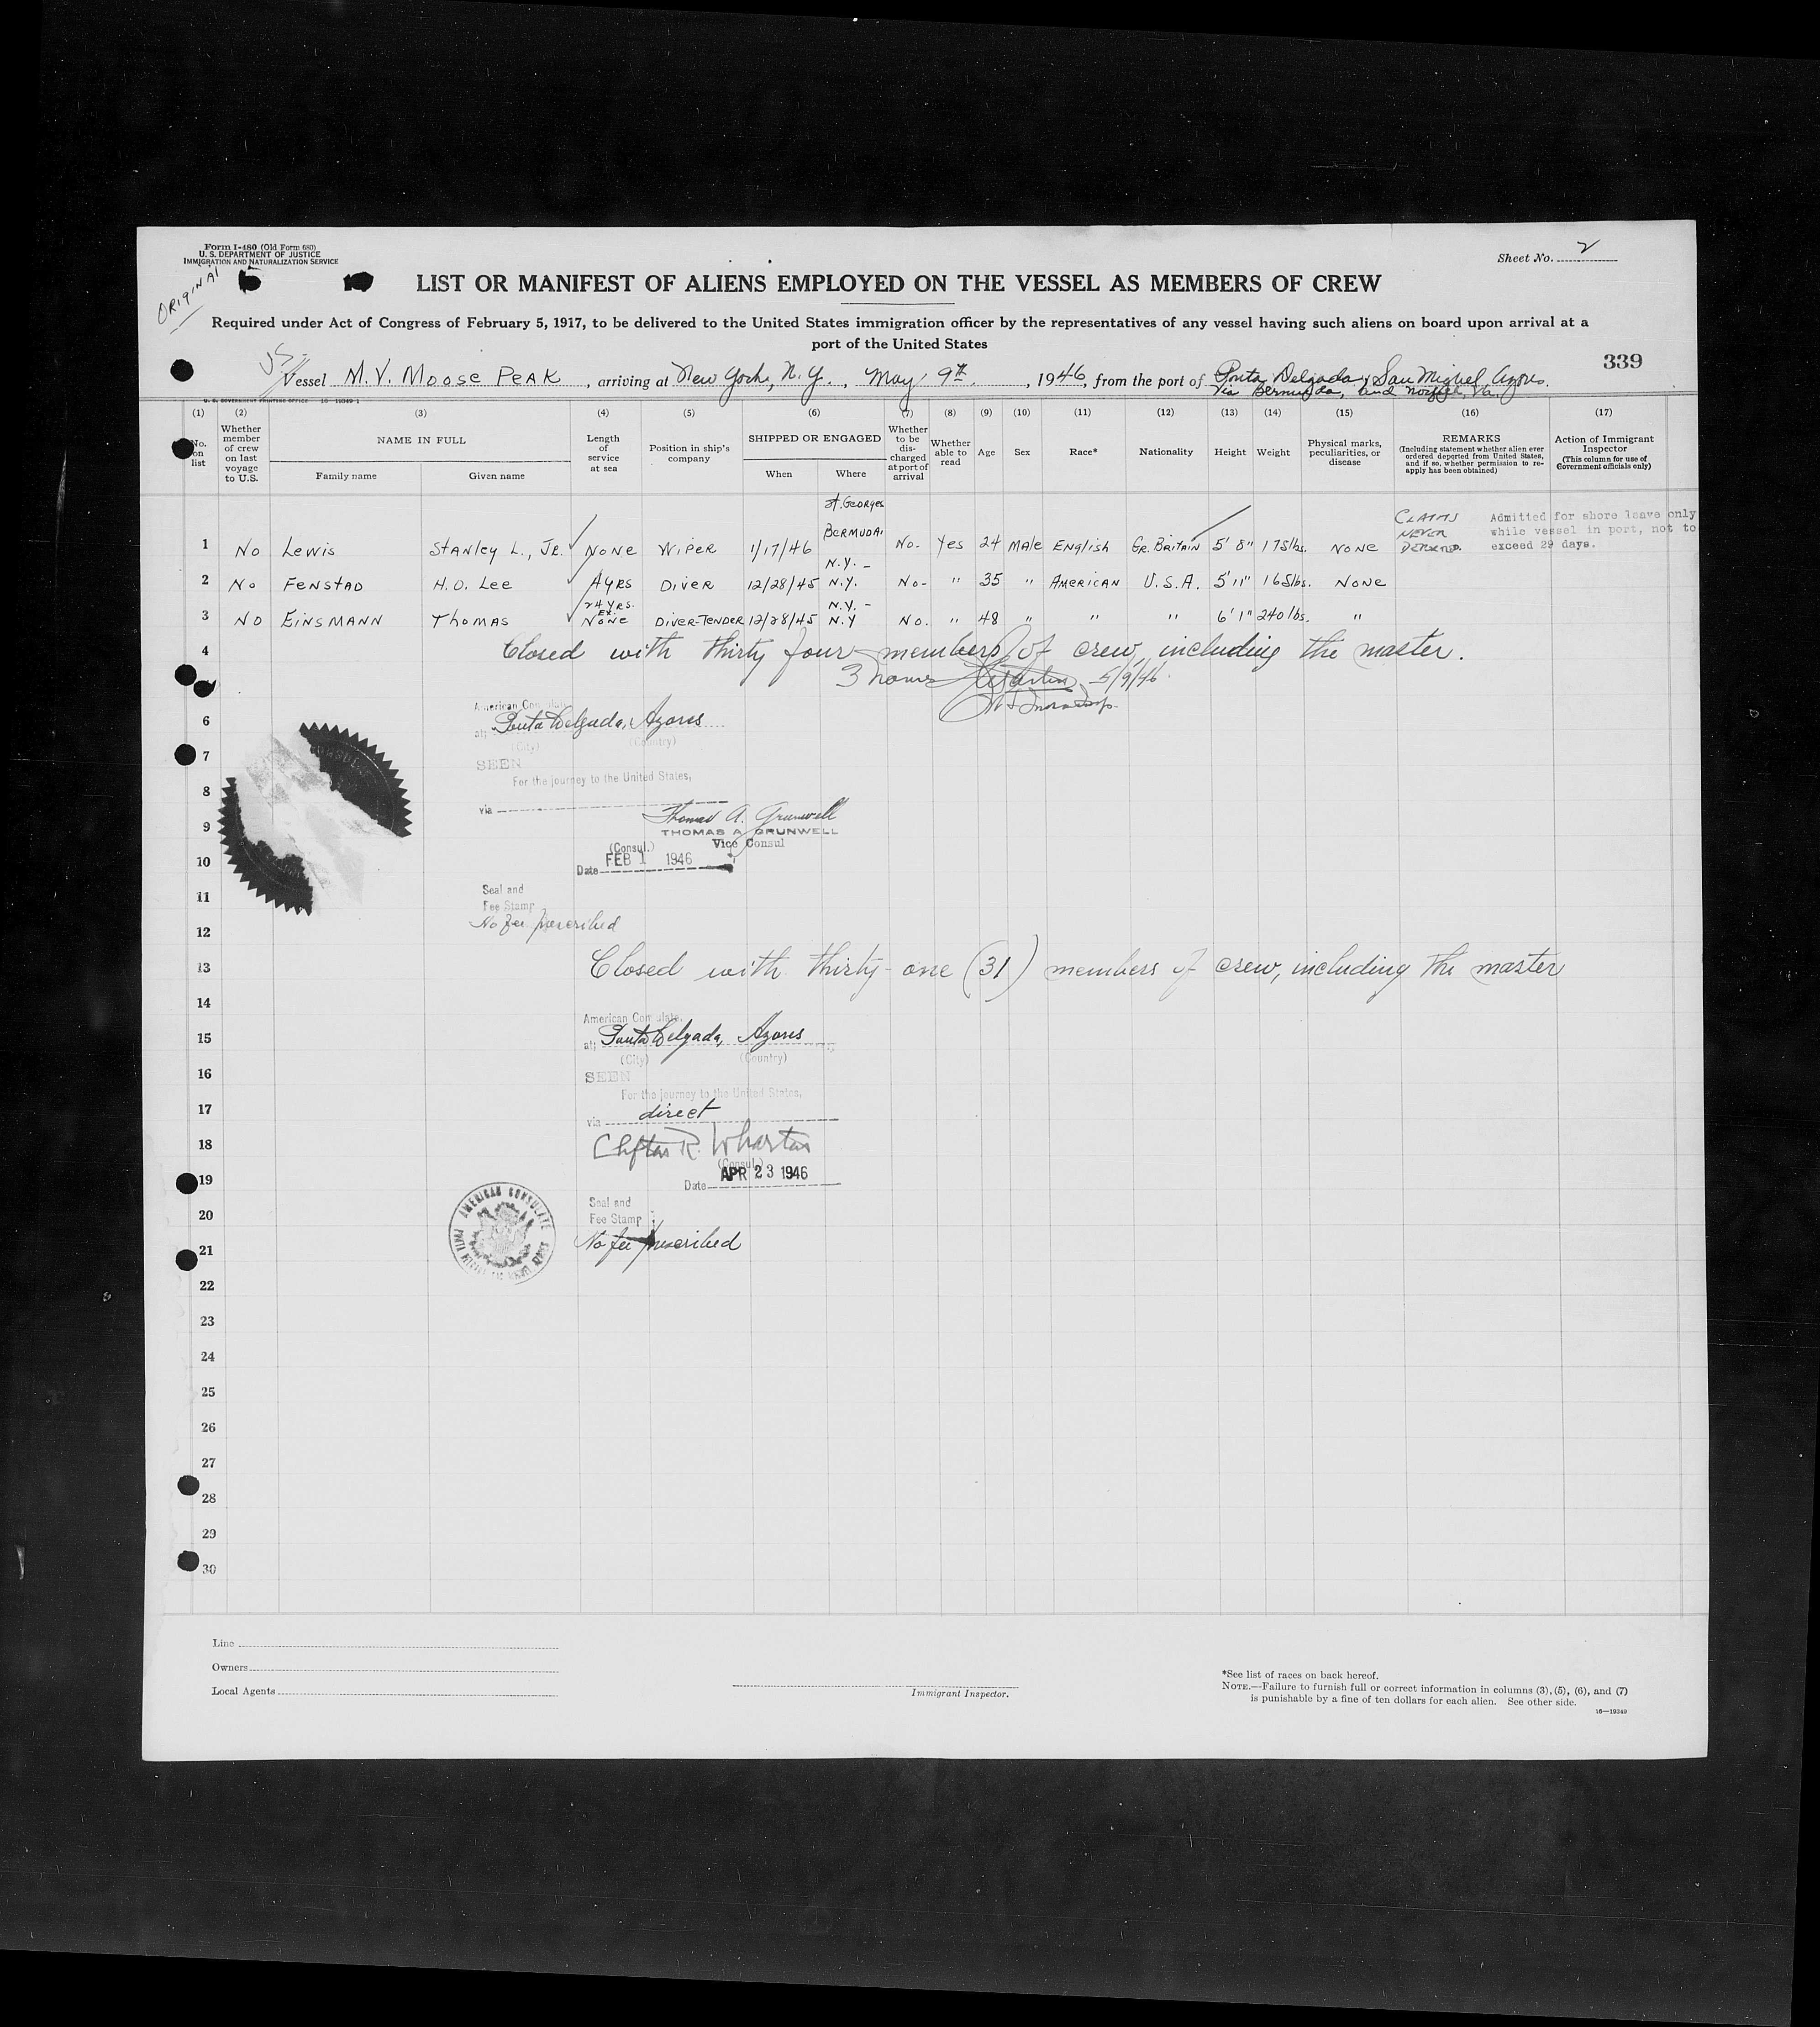 Form I-480 (Old Form 680)
U. S. DEPARTMENT OF JUSTICE
IMMIGRATION AND NATURALIZATION SERVICE
ORIGINAL
Sheet No. 2
LIST OR MANIFEST OF ALIENS EMPLOYED ON THE VESSEL AS MEMBERS OF CREW
Required under Act of Congress of February 5, 1917, to be delivered to the United States immigration officer by the representatives of any vessel having such aliens on board upon arrival at a
port of the United States
339
Vessel M.V. Moose Peak, arriving at New York, N.Y., May 9th, 1946, from the port of Ponta Delgada, San Miguel Azores.
Via Bermuda, and Norfolk, Va.
U. S. GOVERNMENT PRINTING OFFICE 16-19349-1
(1) (2) (3) (4) (5) (6) (7) (8) (9) (10) (11) (12) (13) (14) (15) (16) (17)
No. on list
Whether member of crew on last voyage to U.S.
NAME IN FULL
Family name
Given name
Length of service at sea
Position in ship's company
SHIPPED OR ENGAGED
When
Where
Whether to be discharged at port of arrival
Whether able to read
Age
Sex
Race*
Nationality
Height
Weight
Physical marks, peculiarities, or disease
REMARKS
(Including statement whether alien ever ordered deported from United States, and if so, whether permission to reapply has been obtained)
Action of Immigrant Inspector
(This column for use of Government officials only)
St. Georges
BERMUDA
1 No Lewis Stanley L., Jr. NONE WIPER 1/17/46 No. Yes 24 Male English GR. BRITAIN 5' 8" 175 lbs. NONE
CLAIMS NEVER DEPORTED.
Admitted for shore leave only
while vessel in port, not to
exceed 29 days.
N.Y. -
2 No FENSTAD H.O. Lee 4 yrs DIVER 12/28/45 N.Y. No- " 35 " AMERICAN U.S.A. 5' 11" 165 lbs. NONE
24 YRS. EX. N.Y. -
3 No EINSMANN THOMAS NONE DIVER-TENDER 12/28/45 N.Y No. " 48 " " " 6' 1" 240 lbs. "
4 Closed with thirty four members of crew, including the master.
3 hours 5/9/46
American Consulate
at: Ponta Delgada, Azores
(City) (Country)
6
7
SEEN
For the journey to the United States,
8
via
Thomas A. Grunwell
9
THOMAS A. GRUNWELL
(Consul.) Vice Consul
10
Date FEB 1 1946
11
Seal and
Fee Stamp
No fee prescribed
12
13 Closed with thirty-one (31) members of crew, including the master
14
American Consulate,
15
at: Ponta Delgada, Azores
(City) (Country)
16
SEEN
For the journey to the United States,
17
via direct
18
Clifton R. Wharton
(Consul.)
19
Date APR 23 1946
AMERICAN CONSULATE
Seal and
20
Fee Stamp
No fee prescribed
21
22
23
24
25
26
27
28
29
30
Line
Owners
Local Agents
Immigrant Inspector.
*See list of races on back hereof.
NOTE.—Failure to furnish full or correct information in columns (3), (5), (6), and (7)
is punishable by a fine of ten dollars for each alien. See other side.
16—19349